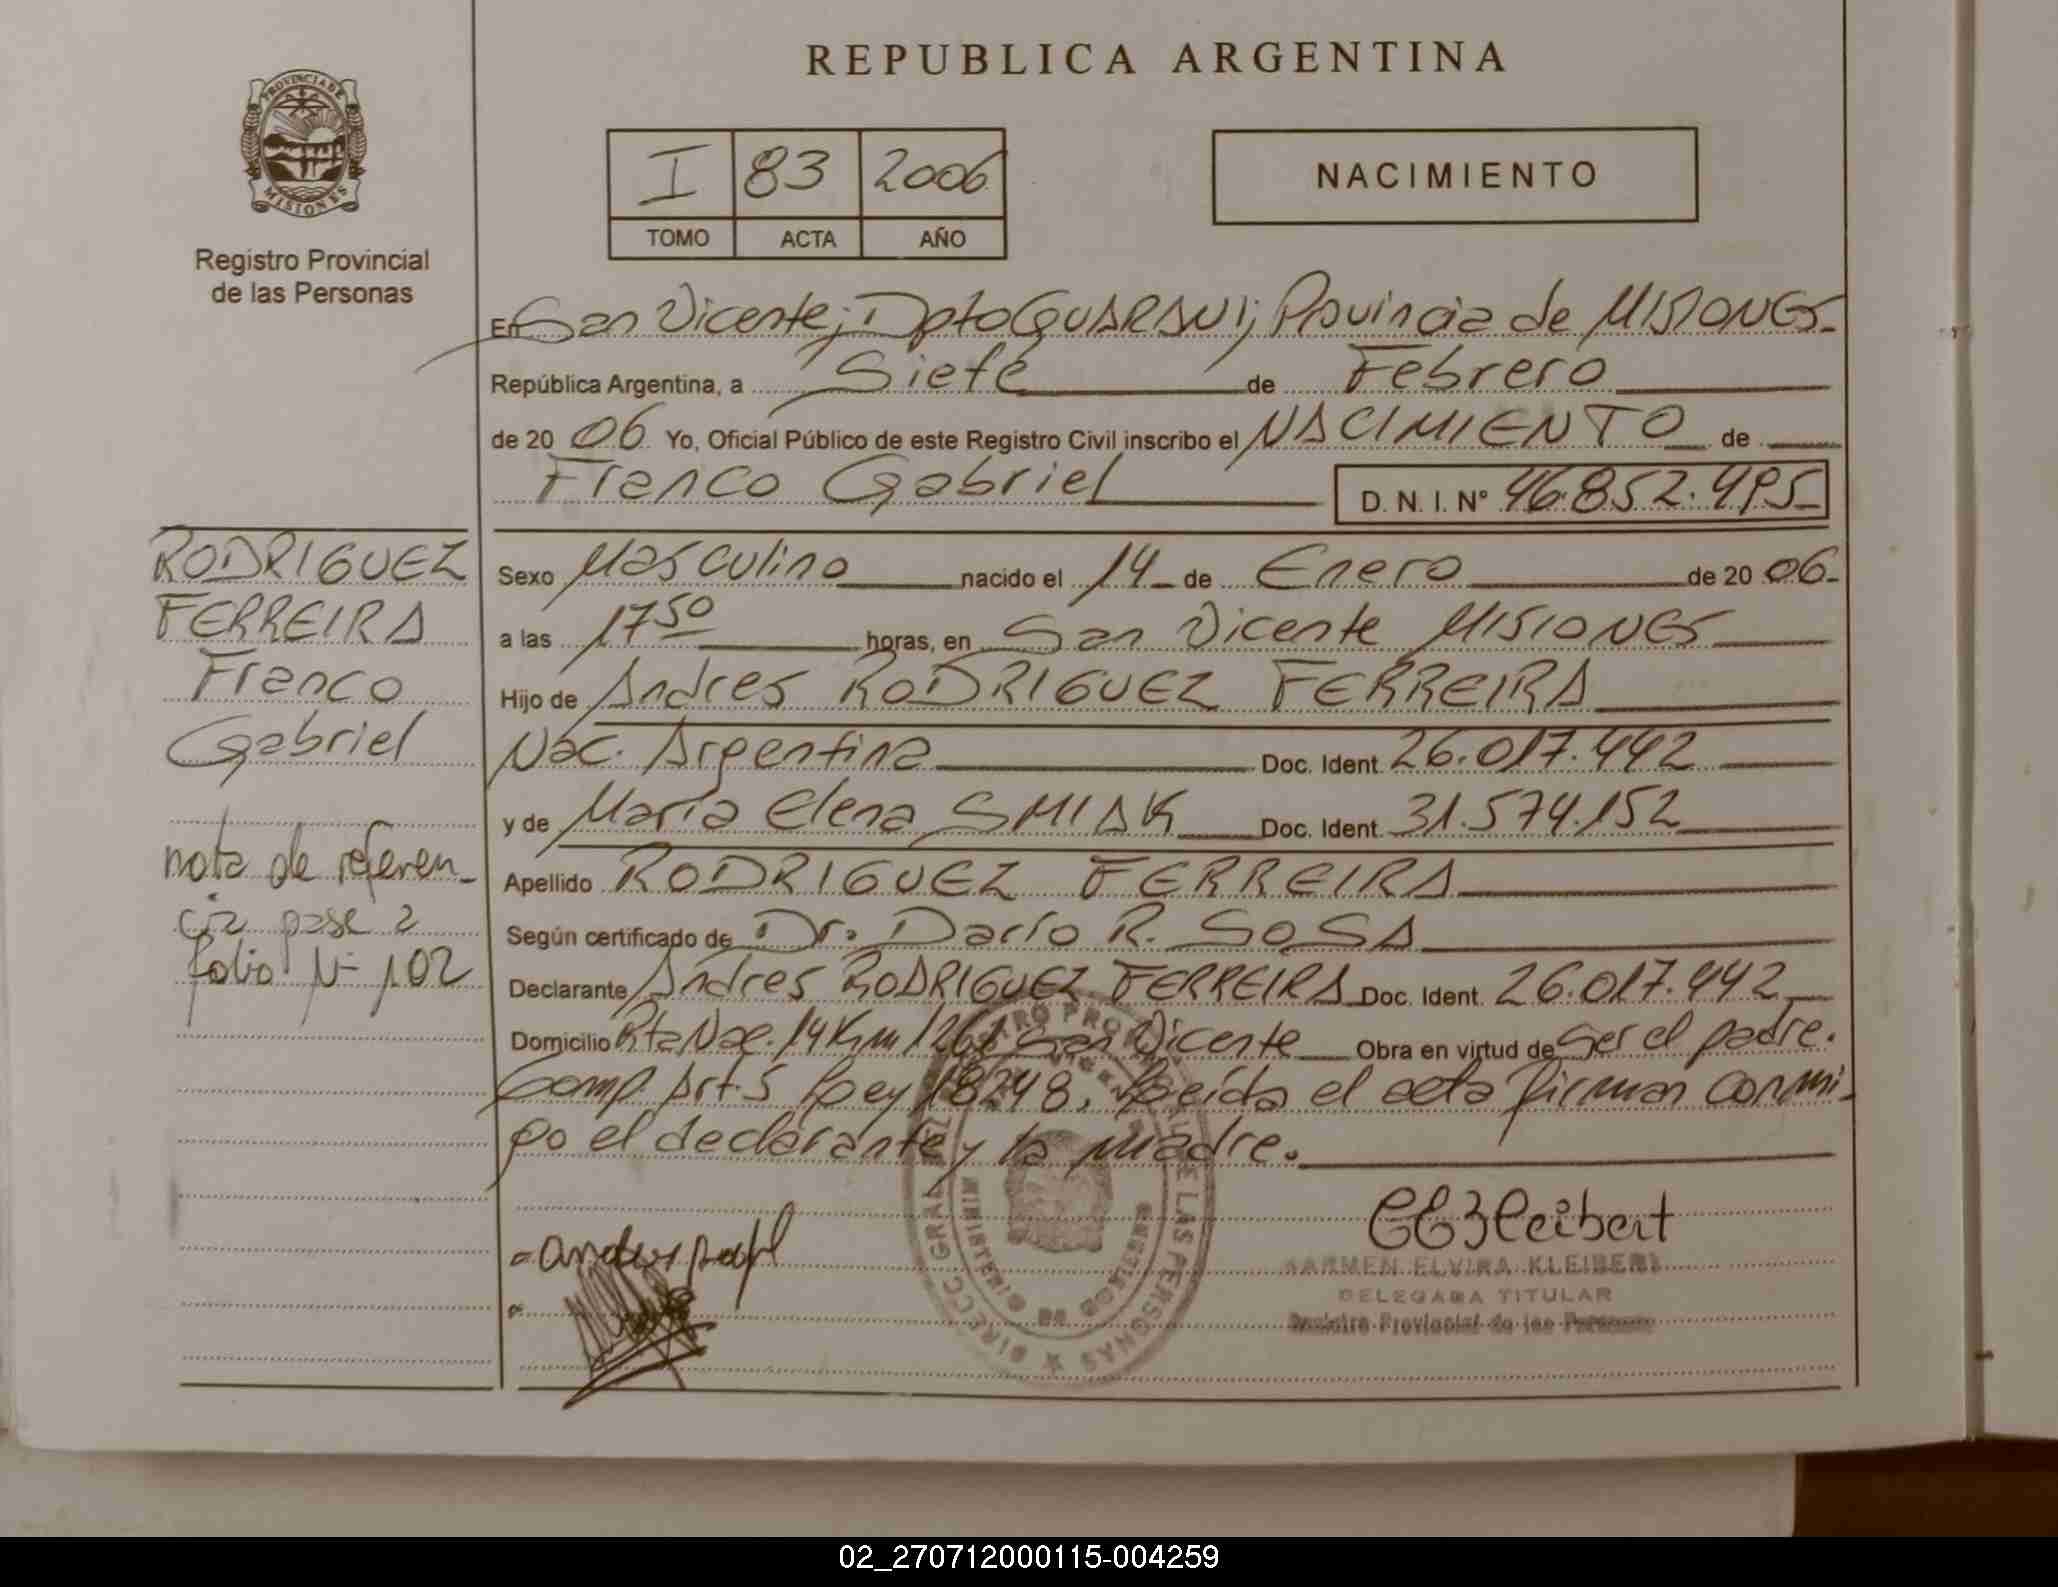 REPUBLICA ARGENTINA
PROVINCIA DE MISIONES
Registro Provincial
de las Personas
I 83 2006
TOMO ACTA AÑO
NACIMIENTO
En San Vicente; Dpto GUARANI; Provincia de MISIONES
República Argentina, a Siete de Febrero
de 20 06 Yo, Oficial Público de este Registro Civil inscribo el NACIMIENTO de
Franco Gabriel D. N. I. Nº 46.852.495
RODRIGUEZ
FERREIRA
Franco
Gabriel
nota de referen-
cia pase a
folio Nº 102
Sexo Masculino nacido el 14 de Enero de 20 06
a las 17 50 horas, en San Vicente MISIONES
Hijo de Andres RODRIGUEZ FERREIRA
Nac. Argentina Doc. Ident. 26.017.442
y de María Elena SMIAK Doc. Ident. 31.574.152
Apellido RODRIGUEZ FERREIRA
Según certificado de Dr. Darío R. SOSA
Declarante Andres RODRIGUEZ FERREIRA Doc. Ident. 26.017.442
Domicilio Rta Nac. 14 Km 1261 San Vicente Obra en virtud de Ser el padre.
Comp. Art. 5 Ley 18248. Leída el acta firman conmi-
go el declarante y la madre.
CARMEN ELVIRA KLEIBERT
DELEGADA TITULAR
Registro Provincial de las Personas
02_270712000115-004259